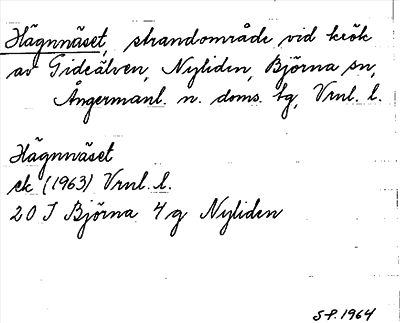 Hägnnäset, strandområde vid krök
av Gideälven, Nyliden, Björna sn,
Ångermanl. n. doms. tg, Vrnl. l.
Hägnnäset
ek (1963) Vrnl. l.
20 J Björna 4 g Nyliden
S-f. 1964